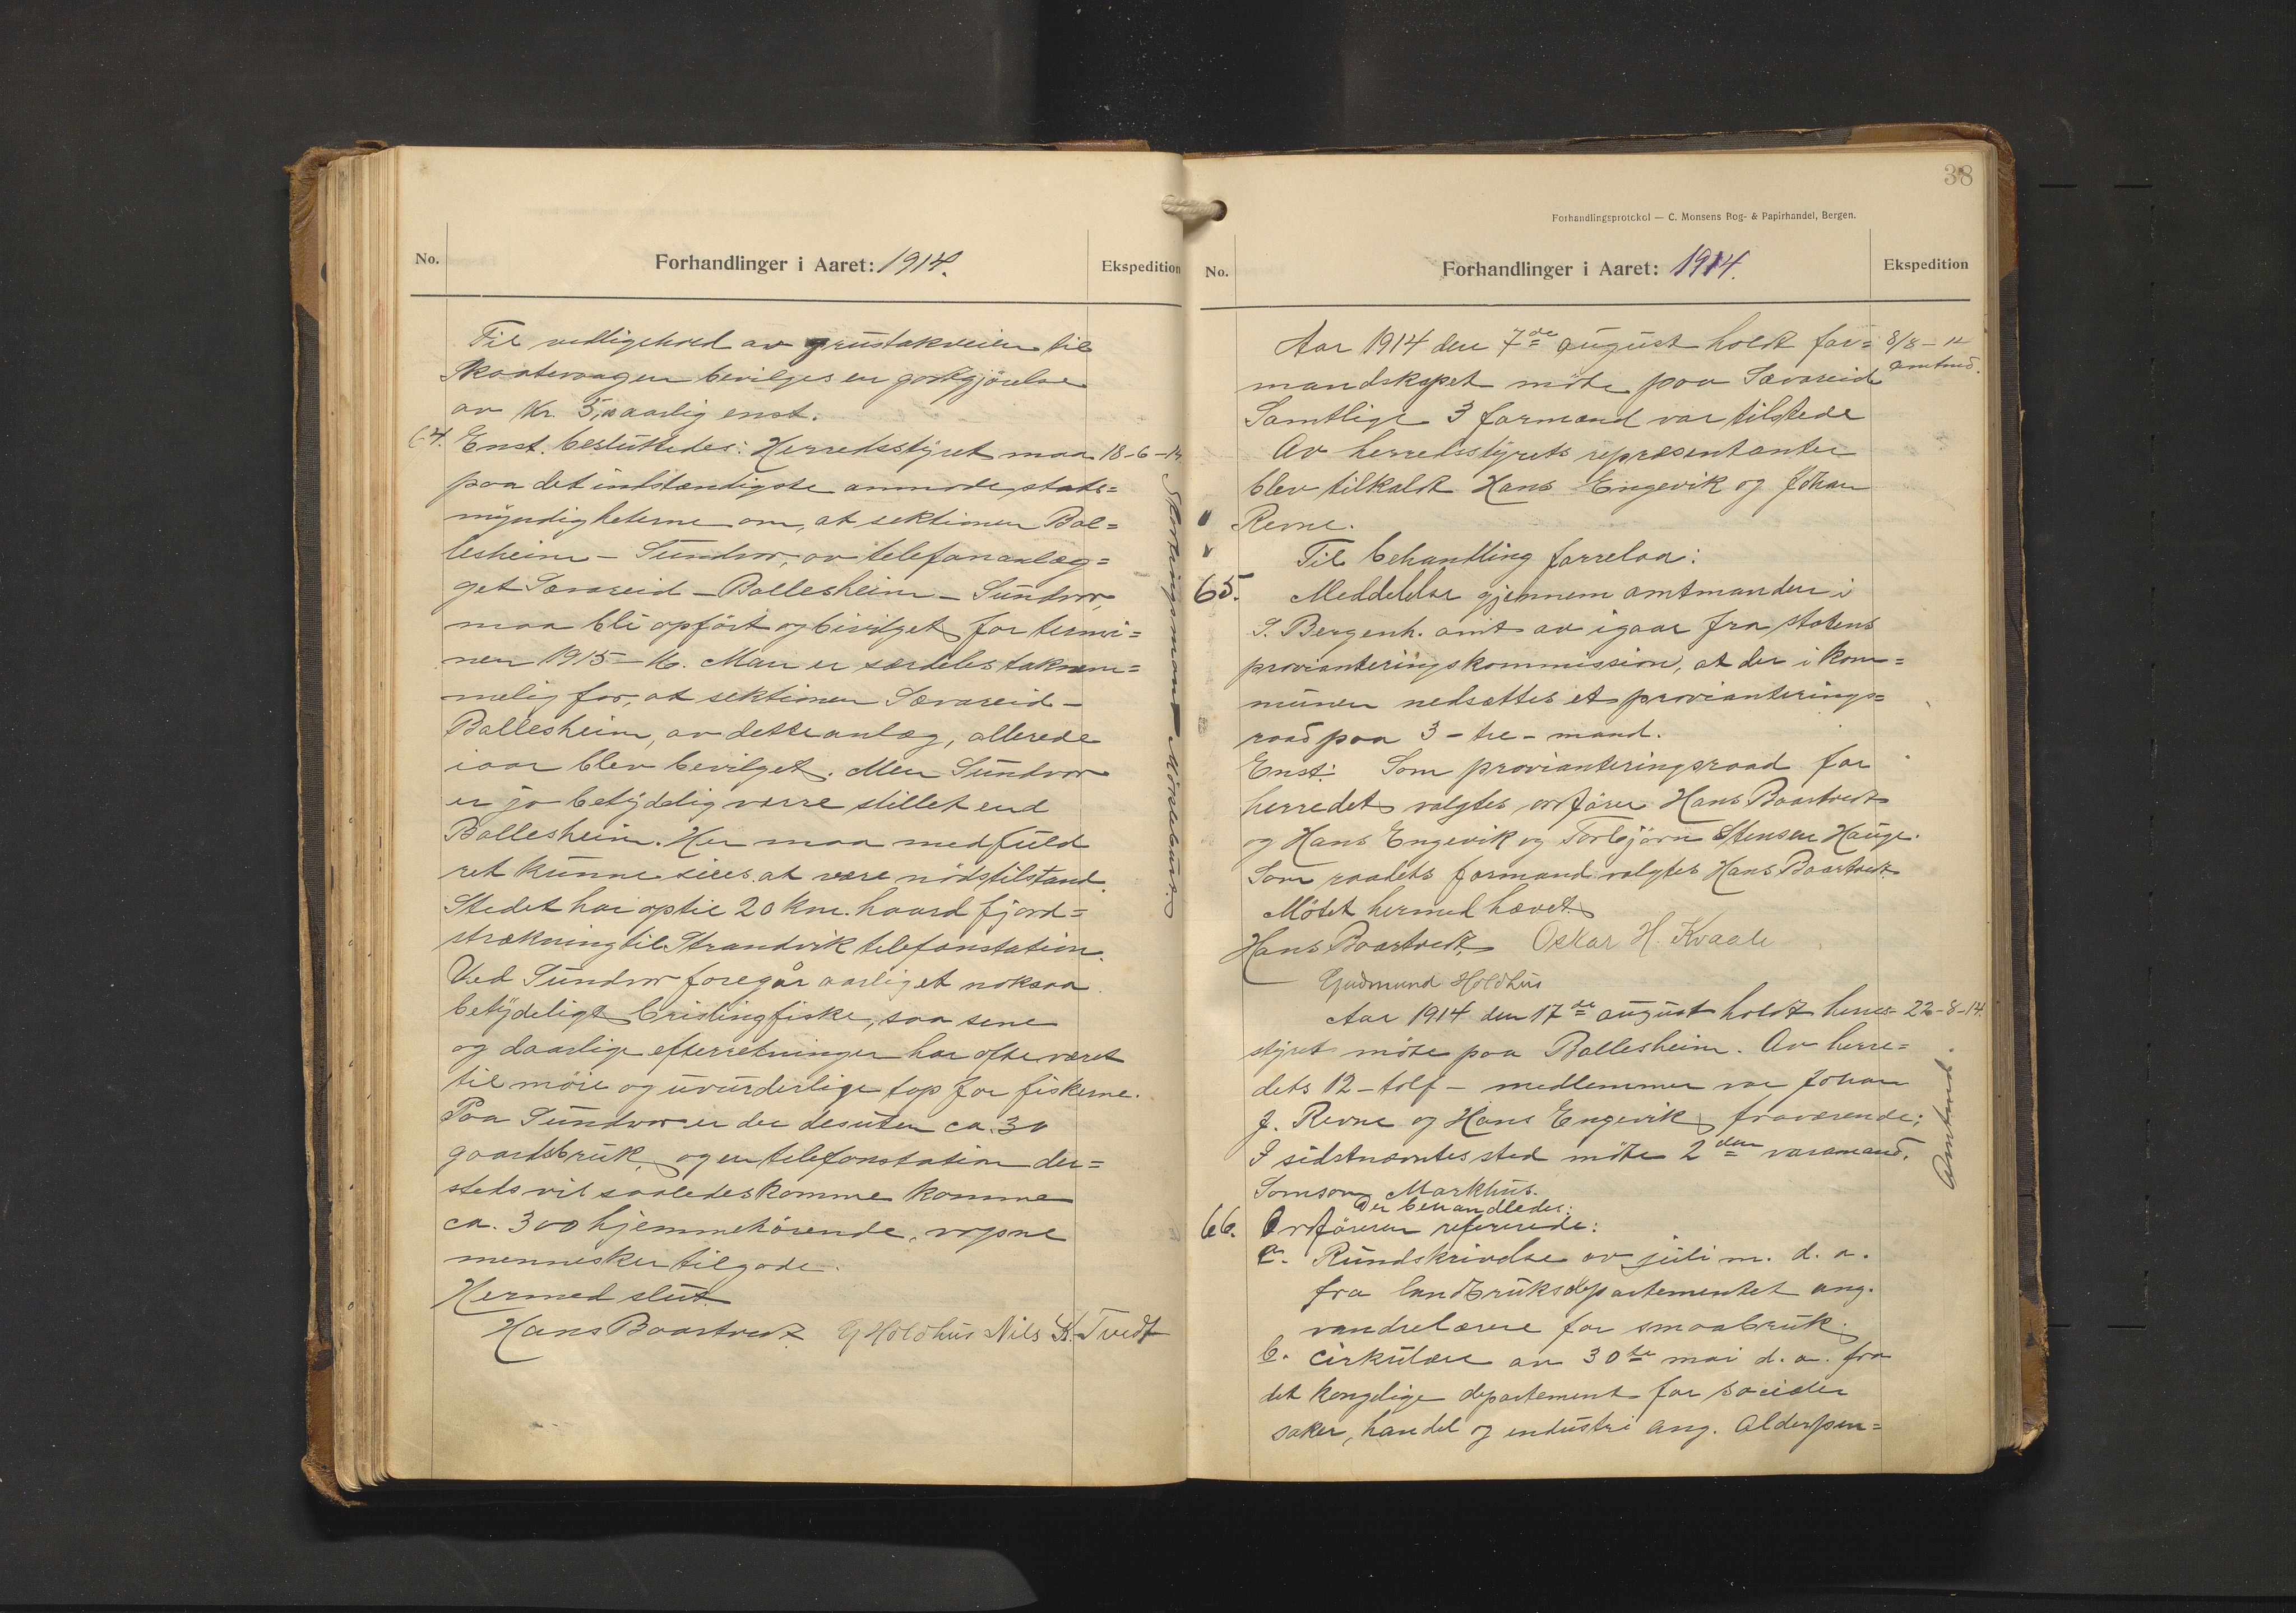 No.
Forhandlinger i Aaret: 1914.
Ekspedition
Til vedligehold av grustakveien til
Skaatevaagen bevilges en godtgjörelse
av Kr. 5,00 aarlig enst.
64. Enst. besluttedes: Herredsstyret maa 18-6-14
paa det indstændigste anmode stats=
myndigheterne om, at sektionen Bal=
lesheim - Sundvor, av telefonanlæg=
get Sævareid - Ballesheim - Sundvor,
maa bli opfört og bevilget for termi=
nen 1915-16. Man er særdeles taknem=
melig for, at sektionen Sævareid-
Ballesheim, av dette anlæg, allerede
iaar blev bevilget. Men Sundvor
er jo betydelig værre stillet end
Ballesheim. Her maa med fuld
ret kunne siees at være nödstilstand.
Stedet har optil 20 km. haard fjord=
strækning til Strandvik telefonstation.
Ved Sundvor foregår aarlig et noksaa
betydeligt brislingfiske, saa sene
og daarlige efterretninger har ofte været
til möie og uvurderlige tap for fiskerne.
Paa Sundvor er der desuten ca. 30
gaardsbruk, og en telefonstation der=
steds vil saaledes komme komme
ca. 300 hjemmehörende, voxne
mennesker tilgode.
Hermed slut.
Hans Baartvedt G Holdhus Nils K. Tvedt
Stortingsmand Mörkhus
38
Forhandlingsprotokol — C. Monsens Bog- & Papirhandel, Bergen.
No.
Forhandlinger i Aaret: 1914.
Ekspedition
Aar 1914 den 7de august holdt for= 8/8-14
mandskapet möte paa Sævareid amtmd.
Samtlige 3 formænd var tilstede
Av herredsstyrets repræsentanter
blev tilkaldt Hans Engevik og Johan
Revne.
Til behandling forrelaa:
65. Meddelelse gjennem amtmanden i
S. Bergenh. amt av igaar fra statens
provianteringskommission, at der i kom=
munen nedsættes et provianterings=
raad paa 3 - tre - mand.
Enst: Som provianteringsraad for
herredet valgtes ordförer Hans Baartvedt
og Hans Engevik og Torbjörn Stensen Hauge.
Som raadets formand valgtes Hans Baartvedt
Mötet hermed hævet.
Hans Baartvedt Oskar H. Kvaale
Gudmund Holdhus
Aar 1914 den 17de august holdt herres= 22-8-14.
styret möte paa Ballesheim. Av herre=
dets 12 - tolf - medlemmer var Johan
J. Revne og Hans Engevik fraværende;
I sidstnævntes sted möte 2den varamand.
Samson Markhus.
Der behandledes:
66. Ordföreren refererede:
a. Rundskrivelse av juli m. d. a.
fra landbruksdepartementet ang.
vandrelærere for smaabruk.
b. Cirkulære av 30te mai d. a. fra
det kongelige departement for sociale
saker, handel og industri ang. Alderspen=
Amtmd.